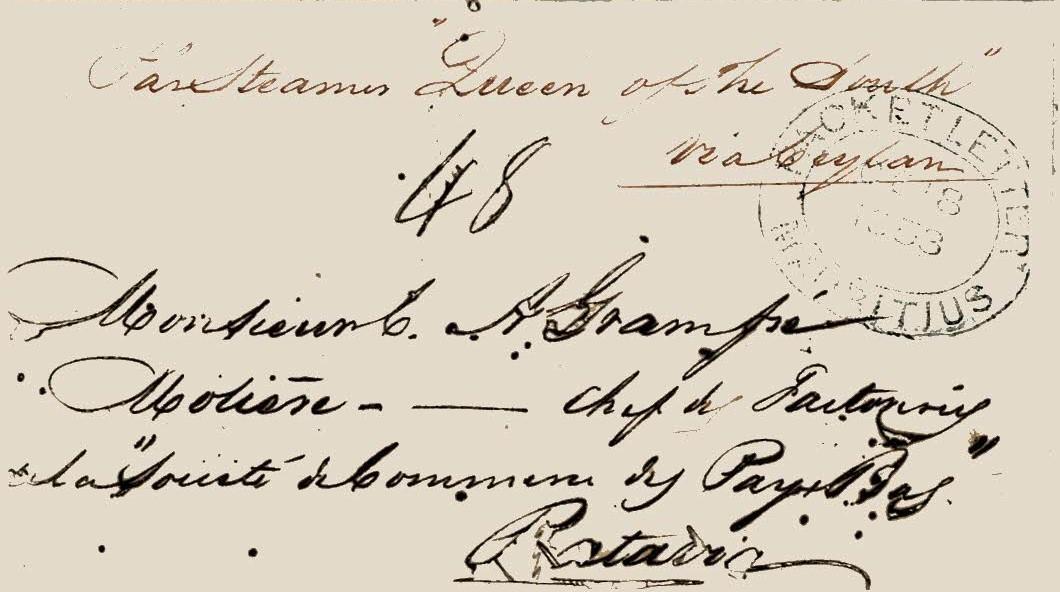 Par Steamer "Queen of The South"
via Ceylan
48
PACKET LETTER
8
1853
MAURITIUS
Monsieur C. A. Grampré
Molière - — chef des Factoreries
de la "Société de Commerce des Pays Bas"
Batavia